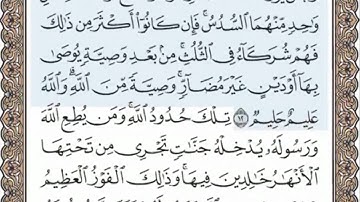 وَٰحِدٖ مِّنۡهُمَا ٱلسُّدُسُۚ فَإِن كَانُوٓاْ أَكۡثَرَ مِن ذَٰلِكَ
فَهُمۡ شُرَكَآءُ فِي ٱلثُّلُثِۚ مِنۢ بَعۡدِ وَصِيَّةٖ يُوصَىٰ
بِهَآ أَوۡ دَيۡنٍ غَيۡرَ مُضَآرّٖۚ وَصِيَّةٗ مِّنَ ٱللَّهِۗ وَٱللَّهُ
عَلِيمٌ حَلِيمٞ ١٢ تِلۡكَ حُدُودُ ٱللَّهِۚ وَمَن يُطِعِ ٱللَّهَ
وَرَسُولَهُۥ يُدۡخِلۡهُ جَنَّٰتٖ تَجۡرِي مِن تَحۡتِهَا
ٱلۡأَنۡهَٰرُ خَٰلِدِينَ فِيهَاۚ وَذَٰلِكَ ٱلۡفَوۡزُ ٱلۡعَظِيمُ